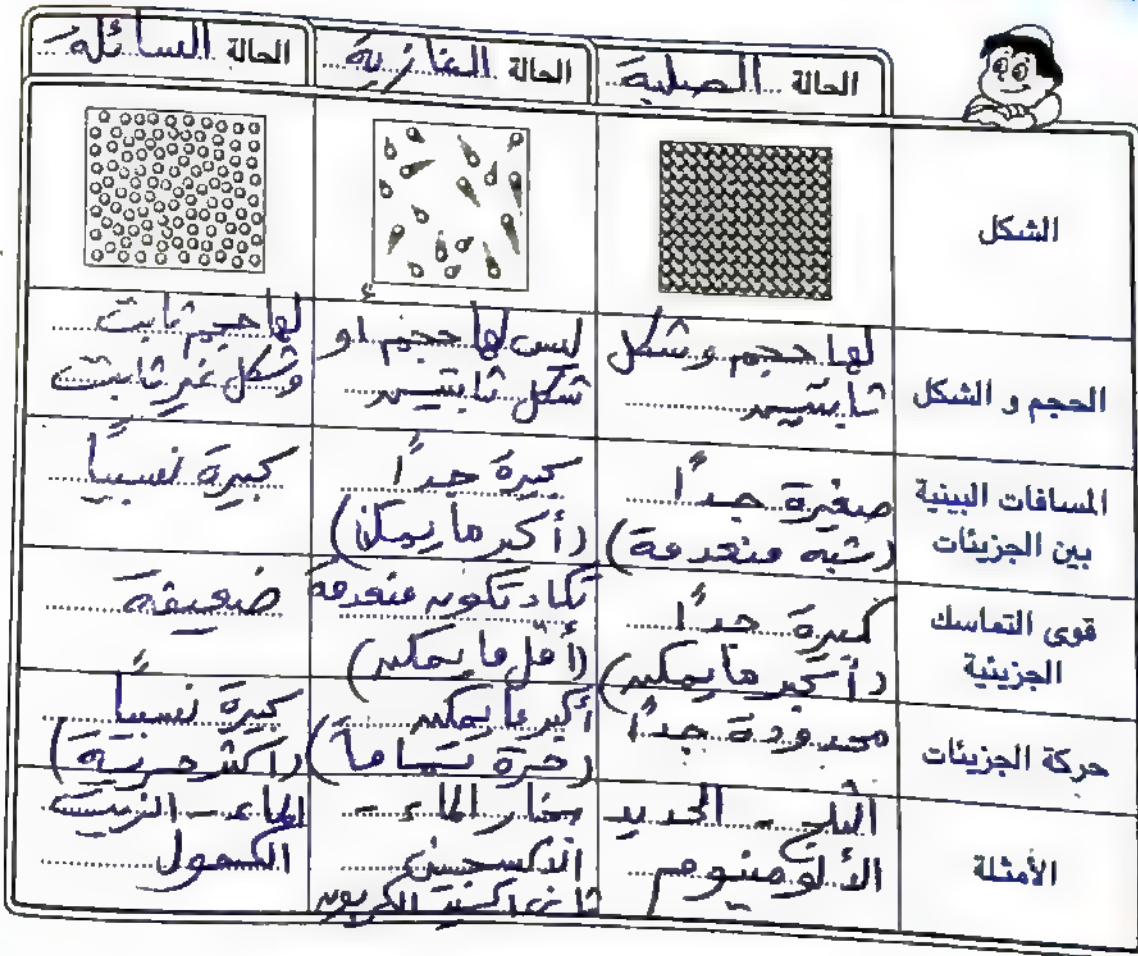 الحالة الصلبة
الحالة الغازية
الحالة السائلة
الشكل
الحجم و الشكل
لها حجم و شكل
ثابتين
ليس لها حجم أو
شكل ثابتين
لها حجم ثابت
وشكل غير ثابت
المسافات البينية
بين الجزيئات
صغيرة جداً
(شبه منعدمة)
كبيرة جداً
(أكبر ما يمكن)
كبيرة نسبياً
قوى التماسك
الجزيئية
كبيرة جداً
(أكبر ما يمكن)
تكاد تكون منعدمة
(أقل ما يمكن)
ضعيفة
حركة الجزيئات
محدودة جداً
أكبر ما يمكن
(حرة تماماً)
كبيرة نسبياً
(أكثر حرية)
الأمثلة
الثلج - الحديد
الألومنيوم
بخار الماء -
الأكسجين
ثاني أكسيد الكربون
الماء - الزيت
الكحول